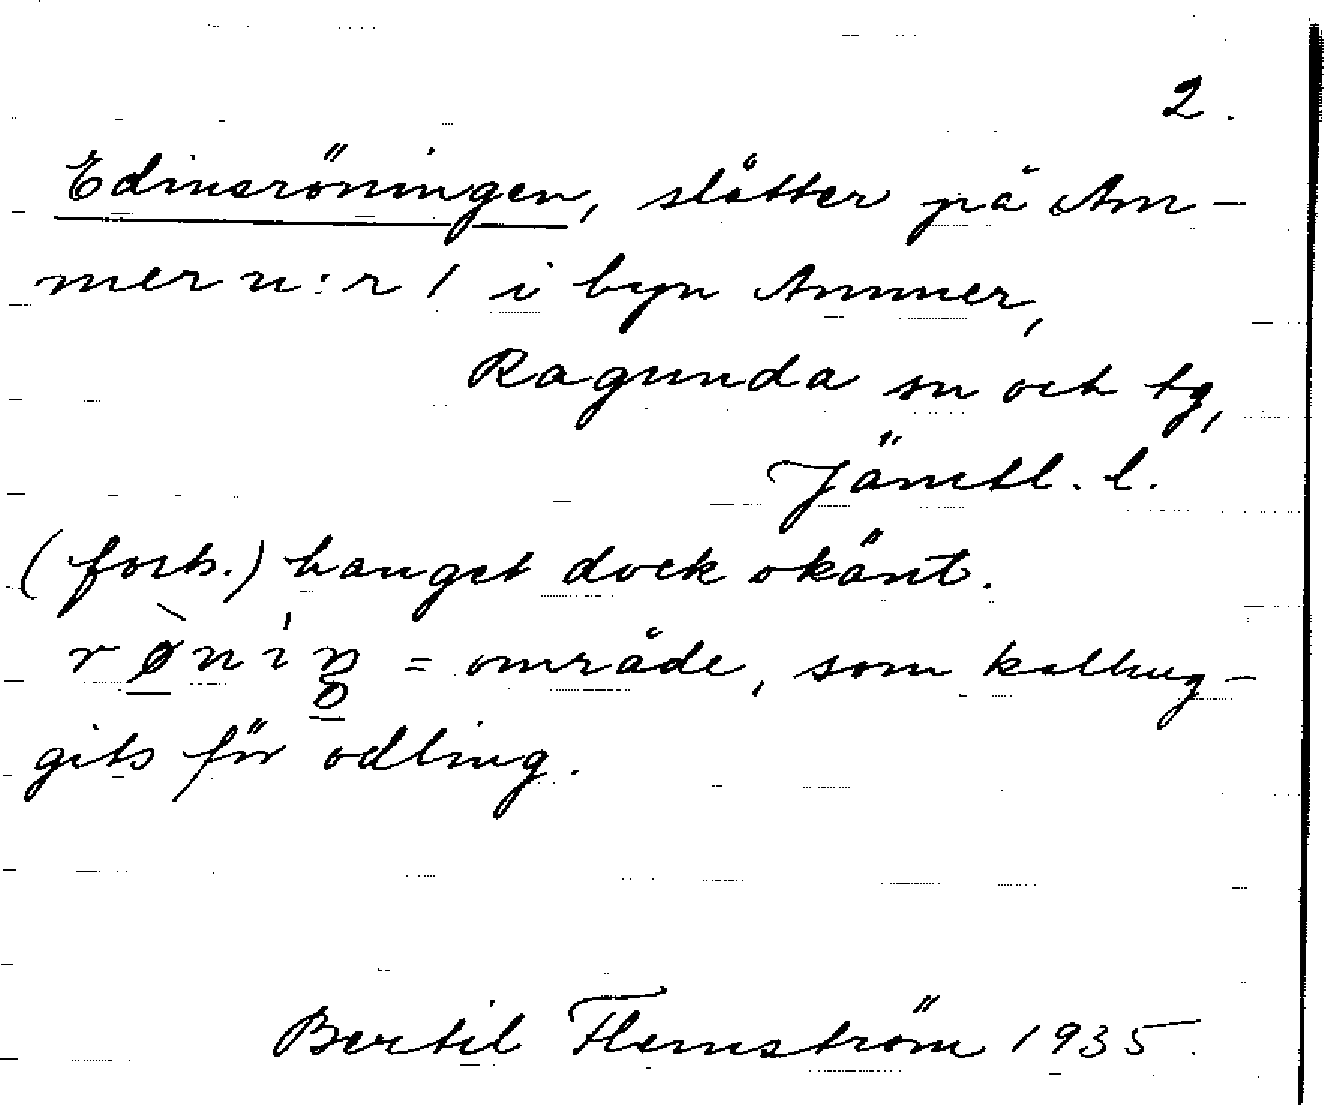 2.
Edinsröningen, slåtter på Am-
mer n:r 1 i byn Ammer,
Ragunda sn och tg,
Jämtl. l.
(forts.) banget dock okänt.
røniŋ = område, som kalhug-
gits för odling.
Bertil Flemström 1935